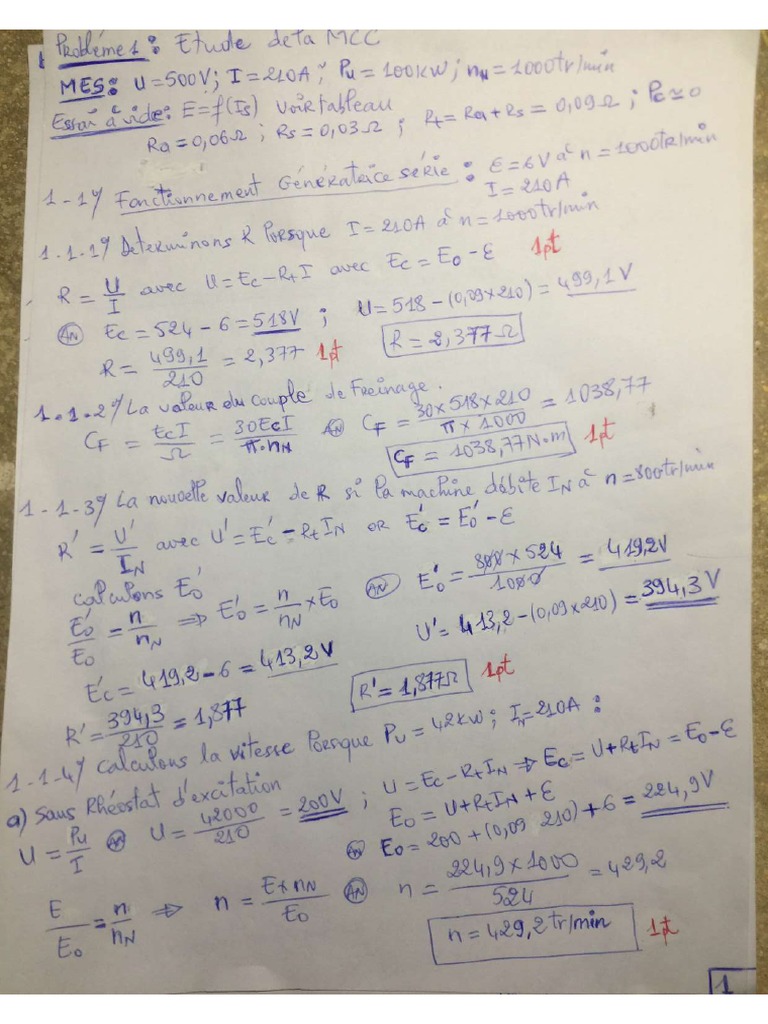 Problème 1 : Etude de la MCC
MES : U = 500V ; I = 210A ; Pu = 100kW ; nN = 1000tr/min
Essai à vide : E = f(Is) voir tableau
Ra = 0,06Ω ; Rs = 0,03Ω ; Rt = Ra + Rs = 0,09Ω ; Pc ≃ 0
1-1°/ Fonctionnement Génératrice série : ε = 6V à n = 1000tr/min
I = 210A
1.1.1°/ Determinons R lorsque I = 210A à n = 1000tr/min
R = U/I avec U = Ec - RtI avec Ec = E0 - ε 1pt
AN Ec = 524 - 6 = 518V ; U = 518 - (0,09×210) = 499,1V
R = 499,1/210 = 2,377 1pt R = 2,377Ω
1.1.2°/ La valeur du couple de Freinage.
CF = EcI/Ω = 30EcI/π.nN AN CF = 30×518×210/π×1000 = 1038,77
CF = 1038,77N.m 1pt
1-1-3°/ La nouvelle valeur de R si la machine débite IN à n = 800tr/min
R' = U'/IN avec U' = E'c - RtIN or E'c = E'0 - ε
calculons E'0
E'0/E0 = n/nN ⇒ E'0 = n/nN × E0 AN E'0 = 800×524/1000 = 419,2V
E'c = 419,2 - 6 = 413,2V U' = 413,2 - (0,09×210) = 394,3V
R' = 394,3/210 = 1,877 R' = 1,877Ω 1pt
1-1-4°/ calculons la vitesse lorsque Pu = 42kW ; IN = 210A :
a) Sans Rhéostat d'excitation
U = Pu/I AN U = 42000/210 = 200V ; U = Ec - RtIN ⇒ Ec = U + RtIN = E0 - ε
E0 = U + RtIN + ε
AN E0 = 200 + (0,09 210) + 6 = 224,9V
E/E0 = n/nN ⇒ n = E×nN/E0 AN n = 224,9×1000/524 = 429,2
n = 429,2tr/min 1pt
1